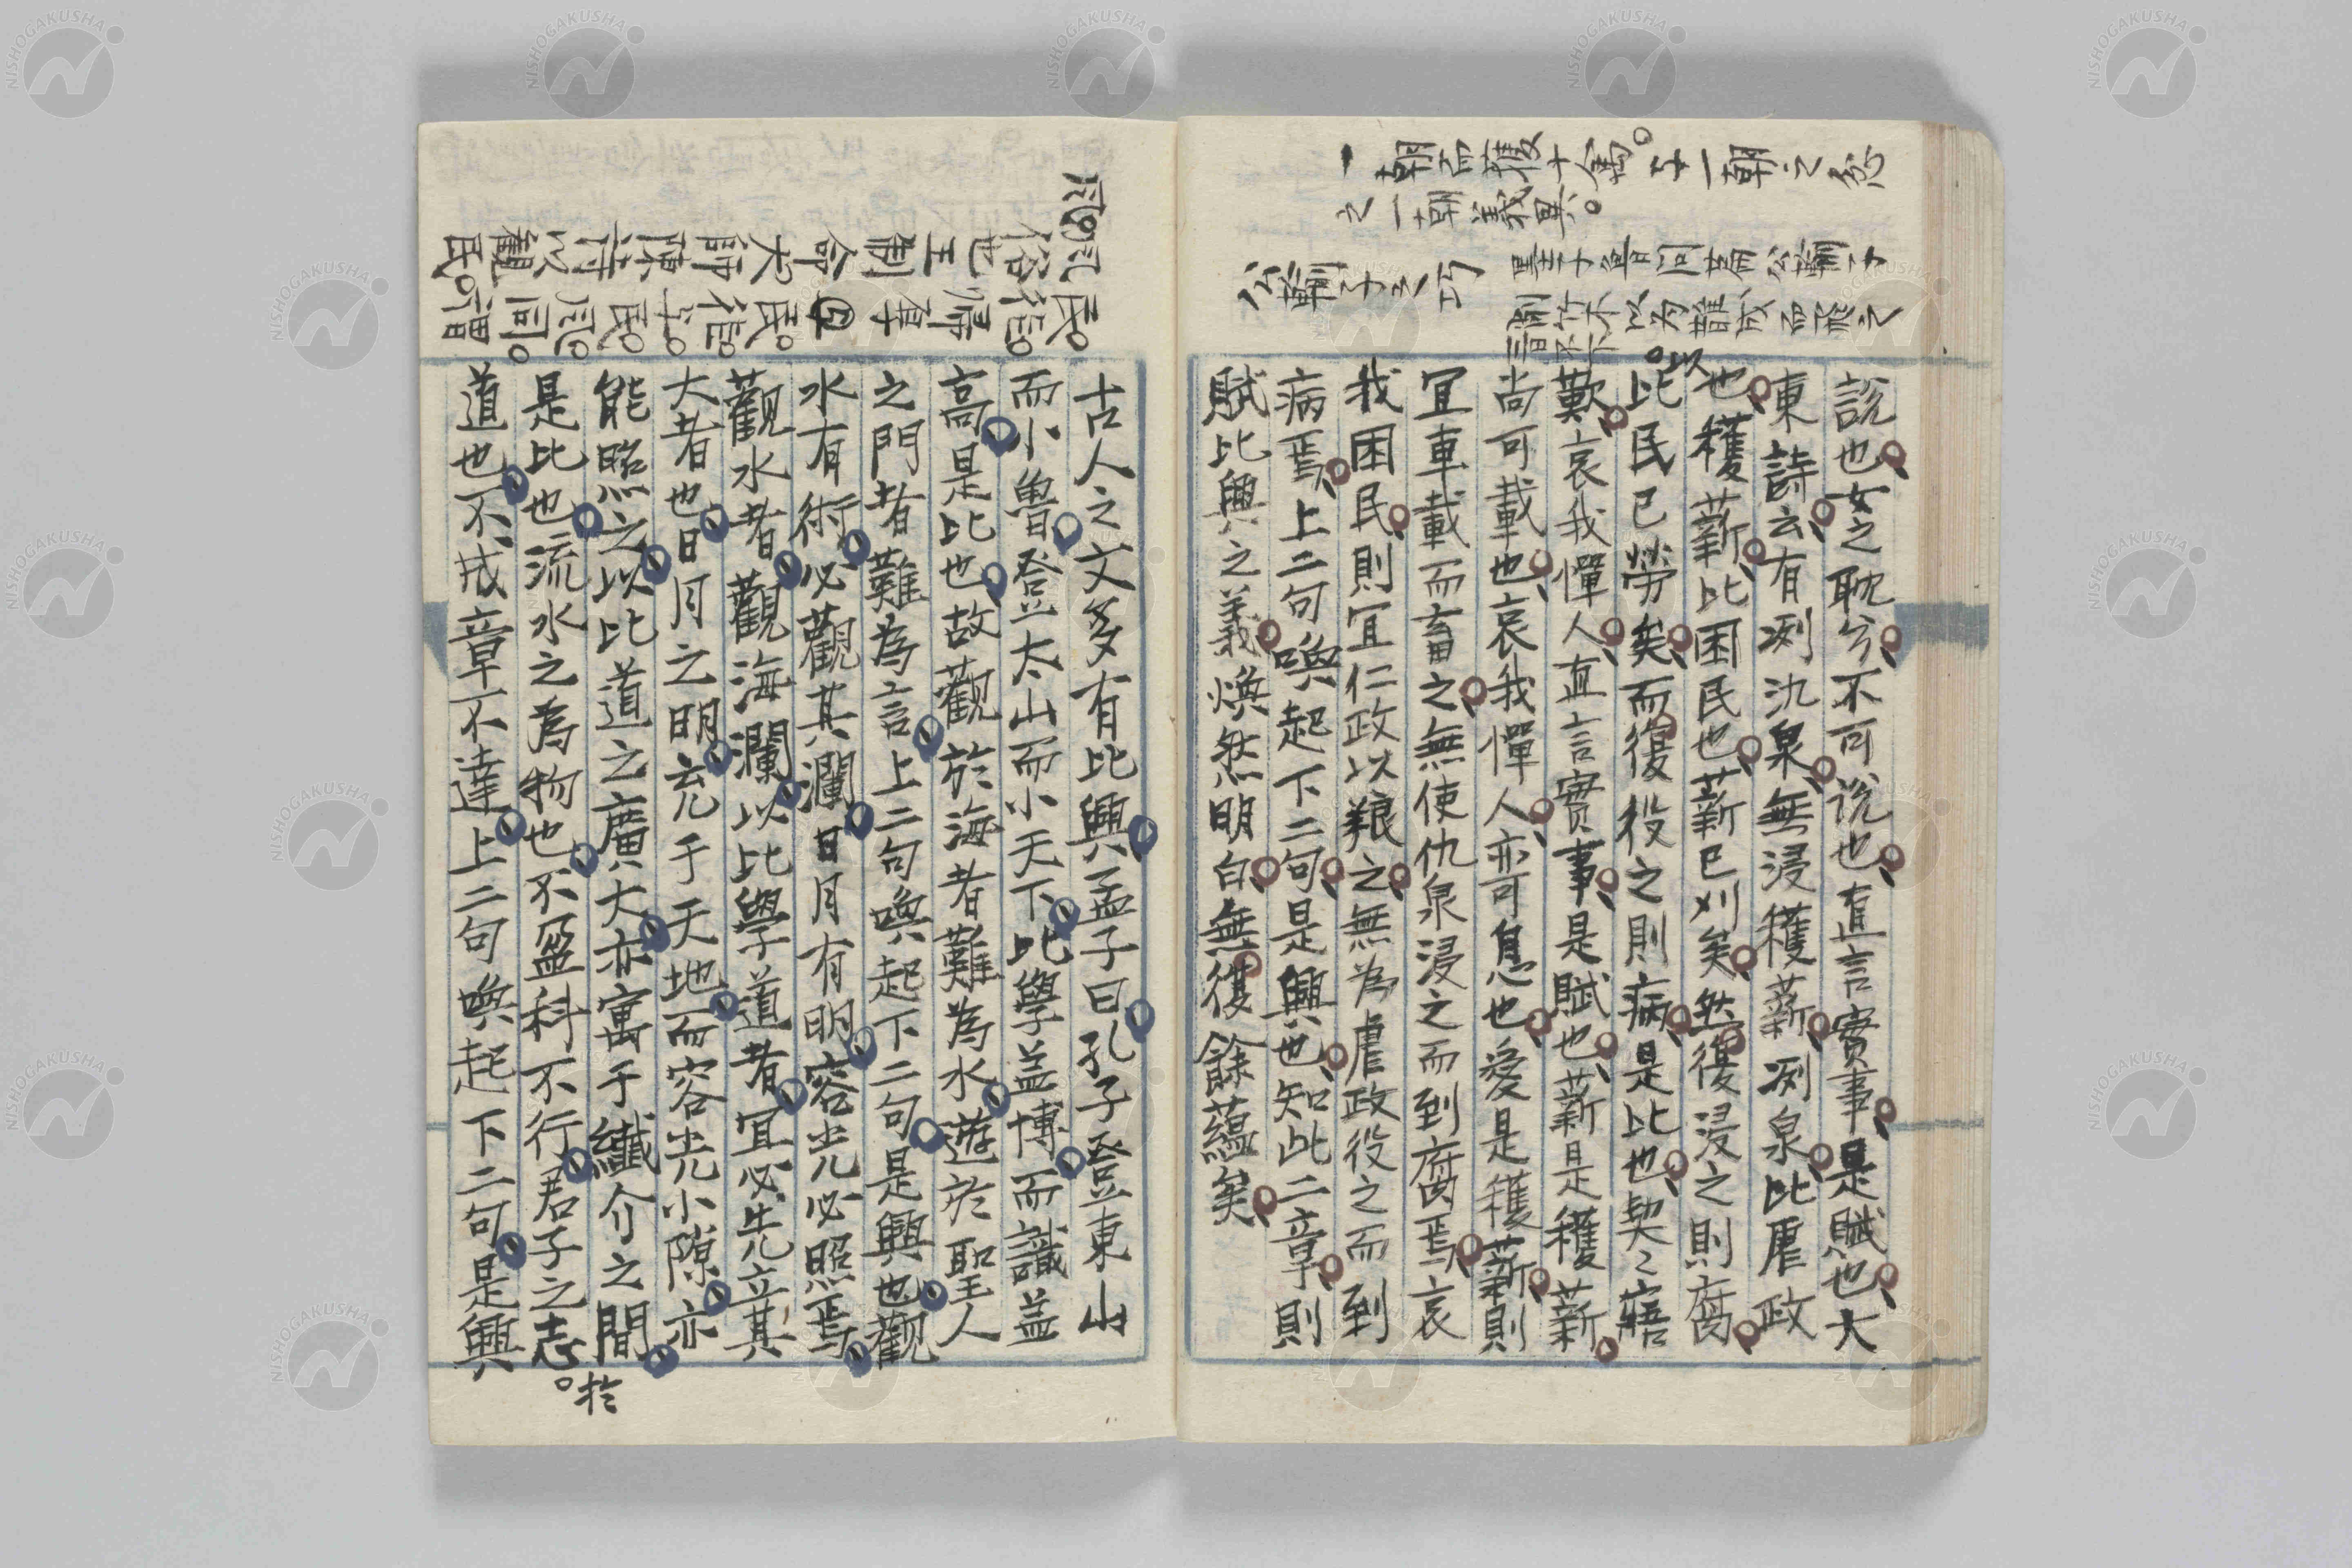 一朝而獲十禽。与一朝之忿
之一朝義異。
公輸子之巧
墨子魯問篇公輸子
削竹木以為䧿成而飛之
三日不下
説也女之耽兮不可説也直言實事是賦也大
東詩云有冽氿泉無浸穫薪冽泉比虐政
也穫薪比困民也薪已刈矣然復浸之則腐
。以
此民已勞矣而復役之則病是比也契〻寤
歎哀我憚人直言實事是賦也薪是穫薪
尚可載也哀我憚人亦可息也愛是穫薪則
宜車載而畜之無使仇泉浸之而到腐焉哀
我困民則宜仁政以粮之無為虐政役之而到
病焉上二句喚起下二句是興也知此二章則
賦比興之義煥然明白無復餘蘊矣
風
風俗也王制命大師陳詩以觀民
民。
古人之文多有比興孟子曰孔子登東山
而小魯登太山而小天下此學益博而識益
高是比也故觀於海者難為水遊於聖人
之門者難為言上二句喚起下二句是興也觀
水有術必觀其瀾日月有明容光必照焉
觀水者觀海瀾以比學道者宜必先立其
大者也日月之明充于天地而容光小隙亦
能照之以比道之廣大亦寓于纖介之間
是比也流水之為物也不盈科不行君子之志
。於
道也不成章不達上二句喚起下二句是興